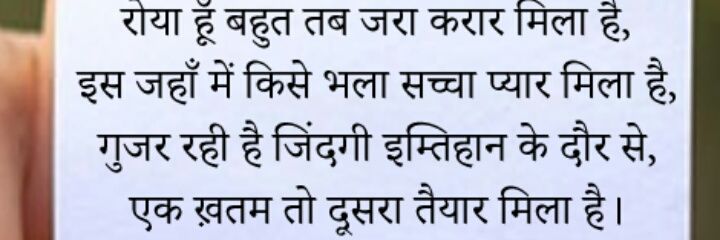 रोया हूँ बहुत तब जरा करार मिला है,
इस जहाँ में किसे भला सच्चा प्यार मिला है,
गुजर रही है जिंदगी इम्तिहान के दौर से,
एक ख़तम तो दूसरा तैयार मिला है।